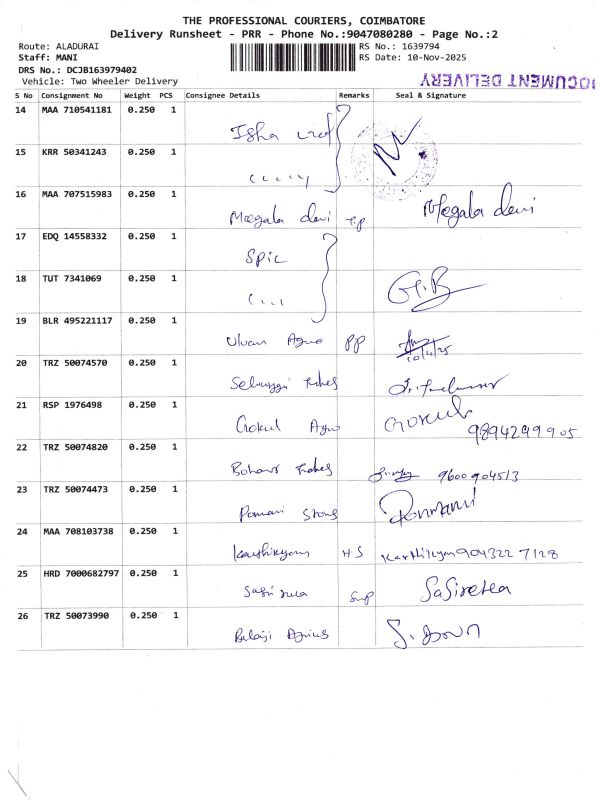 THE PROFESSIONAL COURIERS, COIMBATORE
Delivery Runsheet - PRR - Phone No.:9047080280 - Page No.:2
Route: ALADURAI
Staff: MANI
DRS No.: DCJB163979402
Vehicle: Two Wheeler Delivery
RS No.: 1639794
RS Date: 10-Nov-2025
DOCUMENT DELIVERY
S No Consignment No Weight PCS Consignee Details Remarks Seal & Signature
14 MAA 710541181 0.250 1 Isha
15 KRR 50341243 0.250 1
16 MAA 707515983 0.250 1 Meegala devi Megala devi
17 EDQ 14558332 0.250 1 Spic
18 TUT 7341069 0.250 1 G.B
19 BLR 495221117 0.250 1 PP 10/11/25
20 TRZ 50074570 0.250 1
21 RSP 1976498 0.250 1 Gokul Gokul
9894299905
22 TRZ 50074820 0.250 1 9600904513
23 TRZ 50074473 0.250 1
24 MAA 708103738 0.250 1 Karthikyan HS Karthikyan 904322 7128
25 HRD 7000682797 0.250 1
26 TRZ 50073990 0.250 1 Balaji